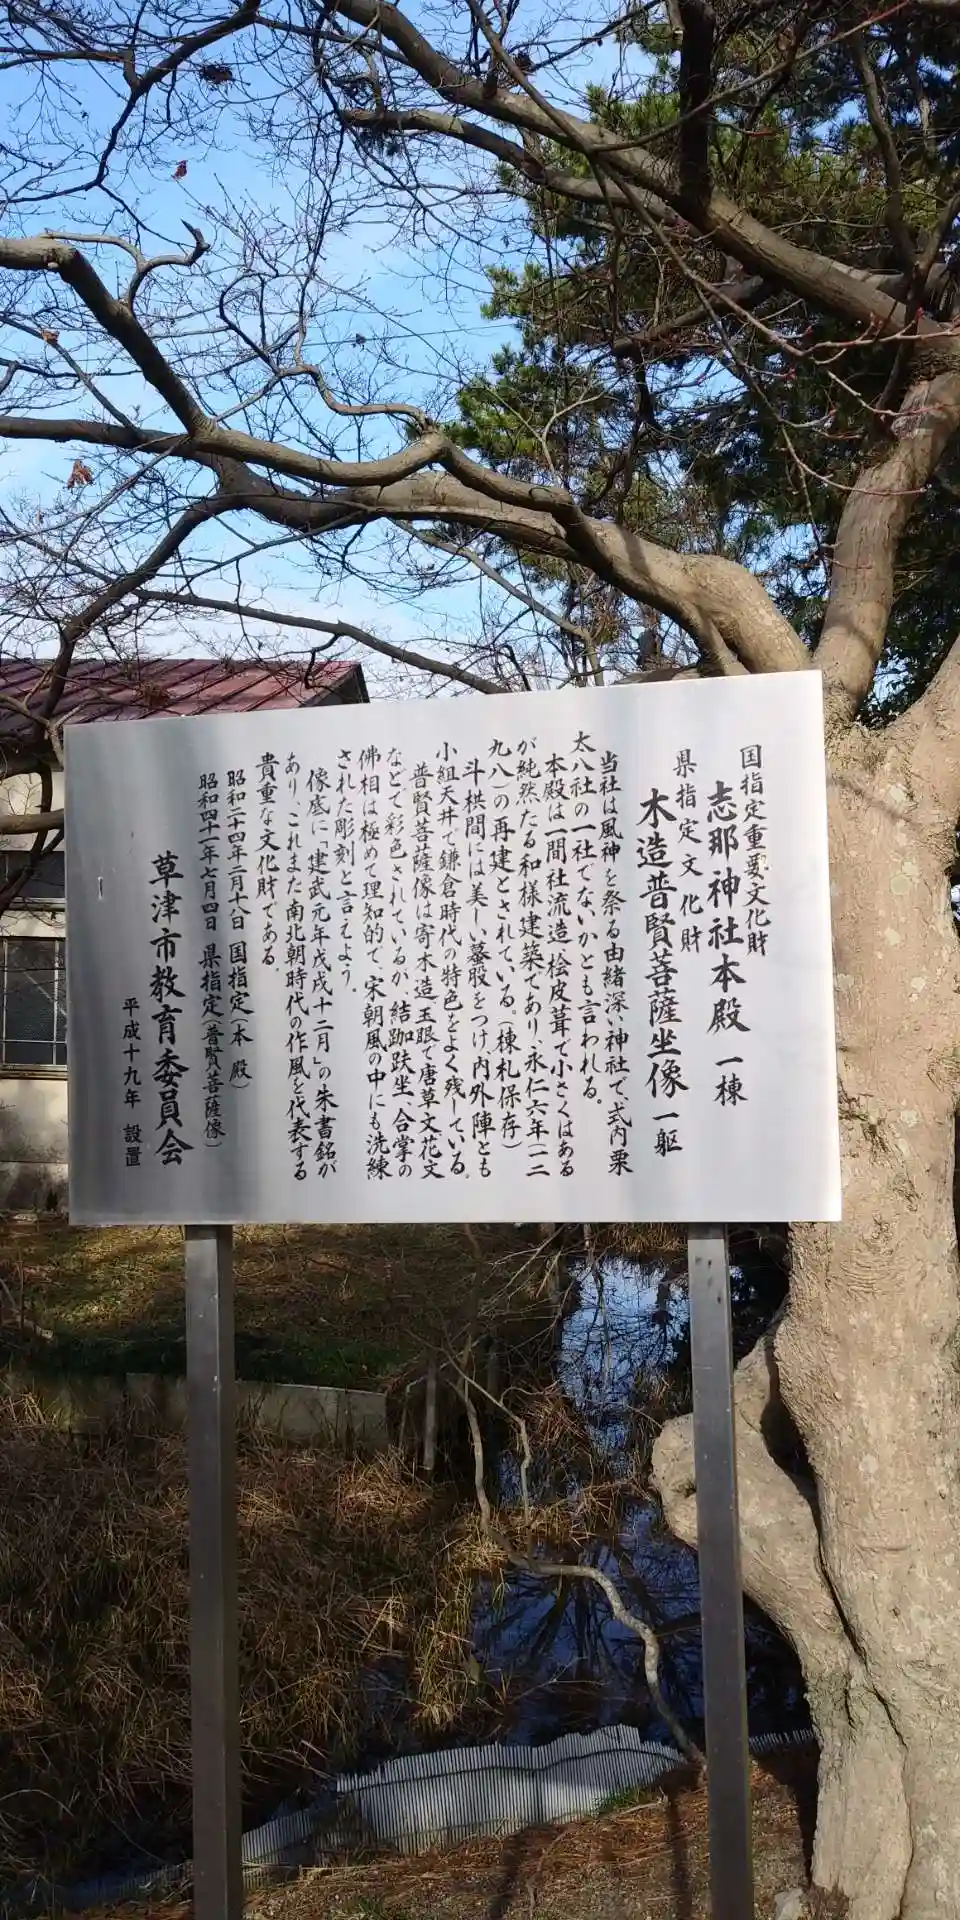 国指定重要文化財
志那神社本殿 一棟
県指定文化財
木造普賢菩薩坐像 一躯
当社は風神を祭る由緒深い神社で、式内栗
太八社の一社でないかとも言われる。
本殿は一間社流造桧皮葺で小さくはある
が純然たる和様建築であり、永仁六年(一二
九八)の再建とされている。(棟札保存)
斗栱間には美しい蟇股をつけ内外陣とも
小組天井で鎌倉時代の特色をよく残している。
普賢菩薩像は寄木造玉眼で唐草文花文
などで彩色されているが、結跏趺坐、合掌の
佛相は極めて理知的で、宋朝風の中にも洗練
された彫刻と言えよう。
像底に「建武元年戊戌十二月」の朱書銘が
あり、これまた南北朝時代の作風を代表する
貴重な文化財である。
昭和二十四年二月十八日 国指定(本殿)
昭和四十一年七月四日 県指定(普賢菩薩像)
草津市教育委員会
平成十九年 設置